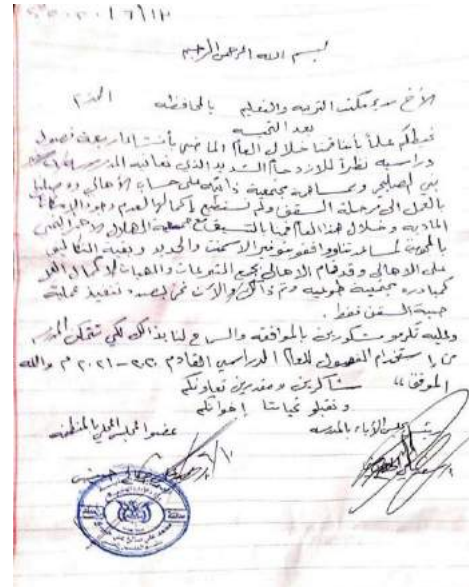 ٢٠٢٠/٦/١٣
بسم الله الرحمن الرحيم
الأخ مدير مكتب التربية والتعليم بالمحافظة المحترم
بعد التحية
نحيطكم علماً بأننا قمنا خلال العام الماضي بأنشاء اربعة فصول
دراسية نظراً للازدحام الشديد الذي تعانيه المدرسة
بني الصليحي وبمساهمة مجتمعية ذاتية على حساب الأهالي
بالفعل الى مرحلة السقف ولم نستطيع إكمالها لعدم وجود الامكانات
المادية وخلال هذا العام قمنا بالتنسيق مع جمعية الهلال الاحمر اليمني
لمساعدتنا ووافقو بتوفير الاسمنت والحديد وبقية التكاليف
على الاهالي وقد قام الاهالي بجمع التبرعات والهبات لإكمال العمل
كمبادرة مجتمعية طوعية وتم ذالك والآن نحن بصدد تنفيذ عملية
صبة السقف فقط .
وعليه تكرمو مشكورين بالموافقة والسماح لنا بذالك لكي تتمكن المدرسة
من إستخدام الفصول للعام الدراسي القادم ٢٠٢٠ - ٢٠٢١ م والله
الموفق ،، شاكرين ومقدرين تعاونكم
وتقبلو تحياتنا إخوانكم
رئيس مجلس الأباء بالمدرسة عضو المجلس المحلي بالمنطقة